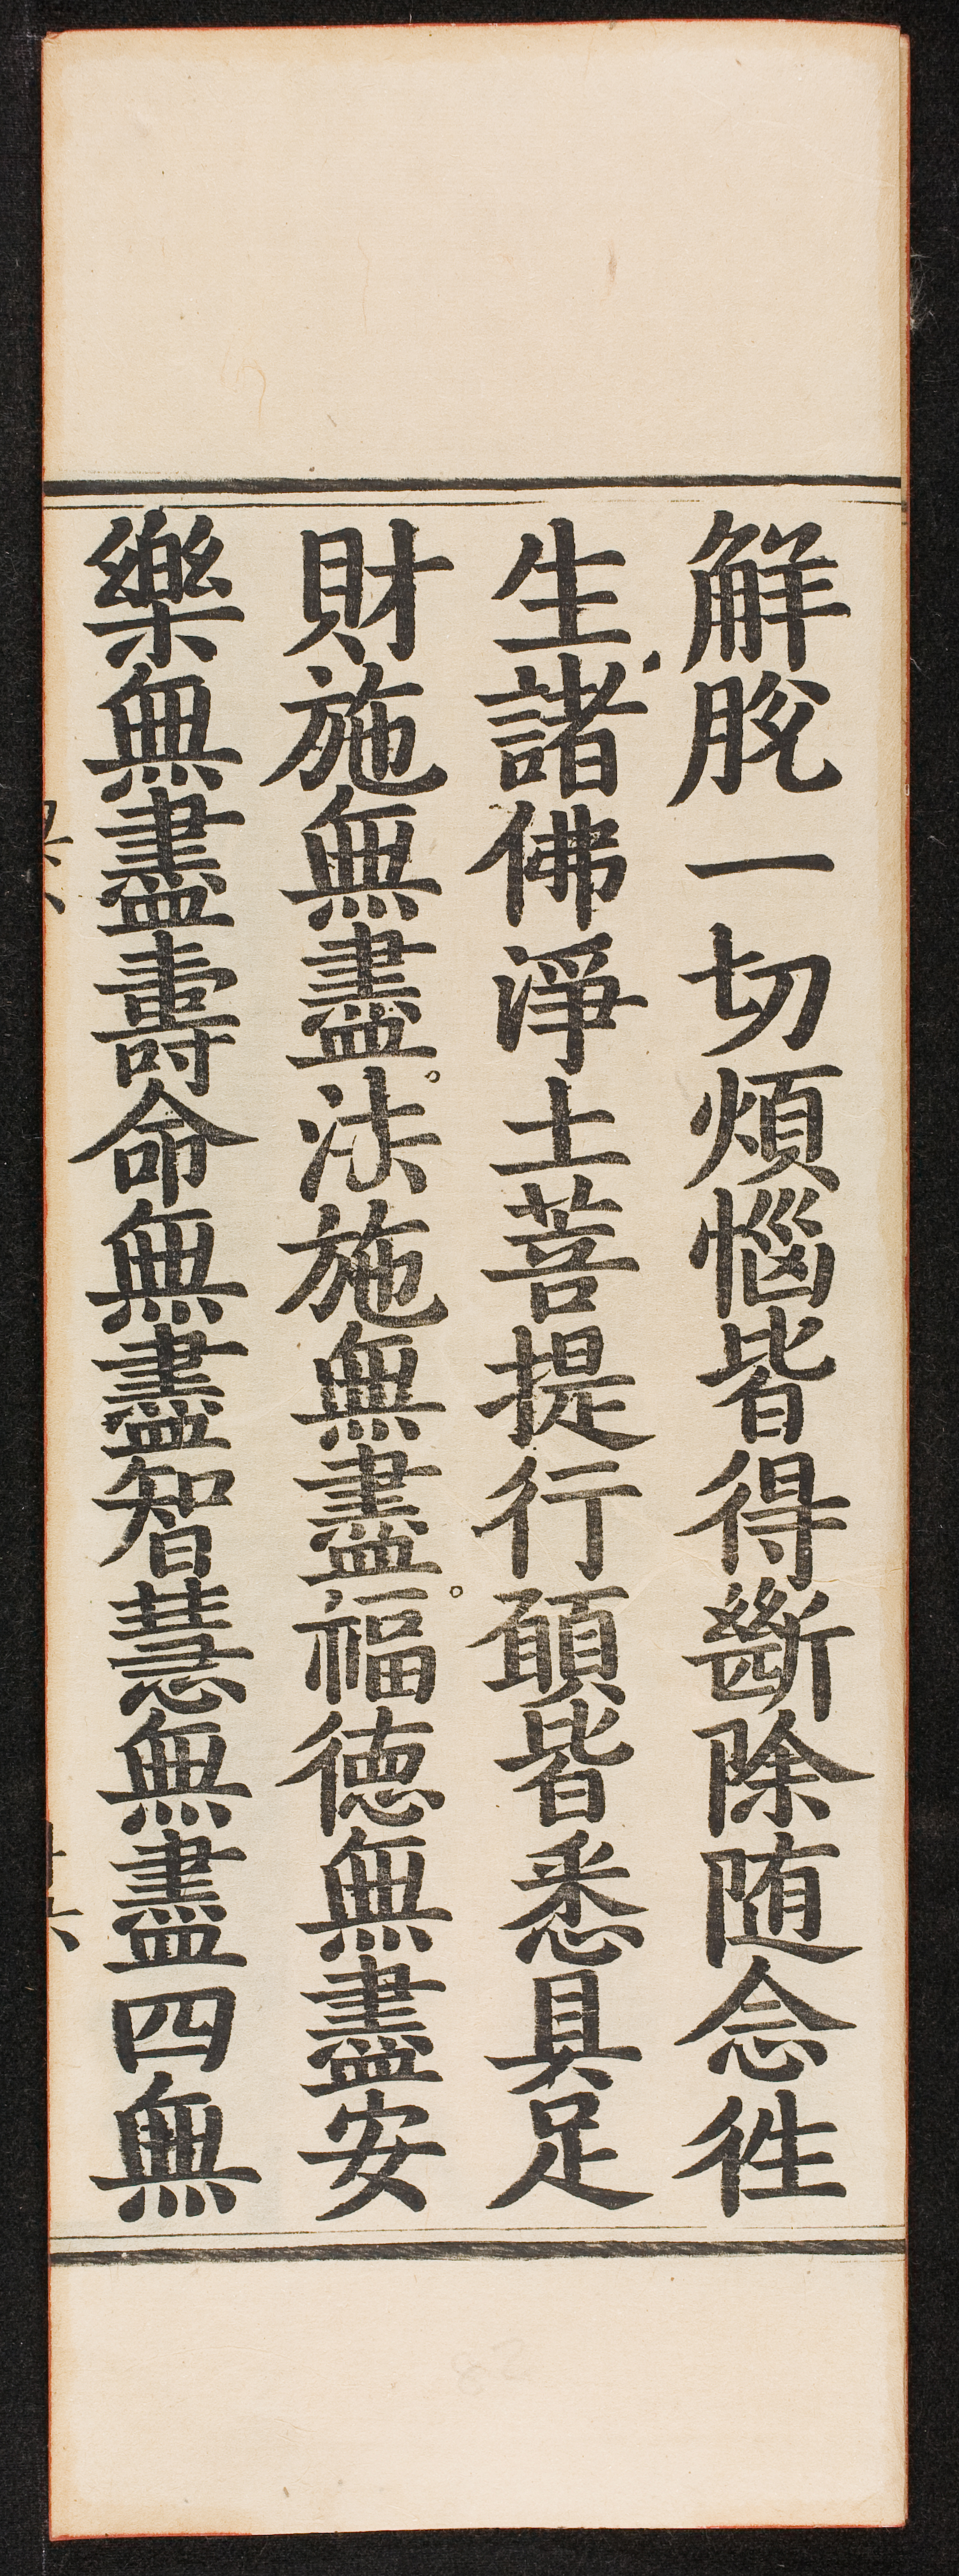 解脫一切煩惱皆得斷除随念徃
生諸佛淨土菩提行願皆悉具足
財施無盡。法施無盡。福德無盡安
樂無盡壽命無盡智慧無盡四無